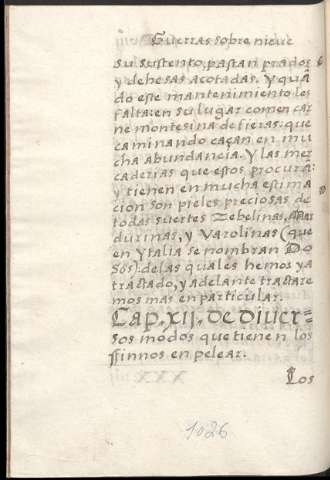 Guerras sobre nieve
su sustento, pastan prados
y dehesas acotadas. Y quã
do este mantenimiento les
falta: en su lugar comen car
ne montesina de fieras: que
caminando caçan en mu
cha abundancia. Y las mer
caderias que estos procurã:
y tienen en mucha estima
cion son pieles preciosas de
todas suertes Zebelinas,
durinas, y Varolinas (que
en Ytalia se nombran Do
sos): de las quales hemos ya
tractado, y adelante tractare
mos mas en particular.
Cap. xij. de diuer=
sos modos que tienen los
ffinnos en pelear.
Los
1026